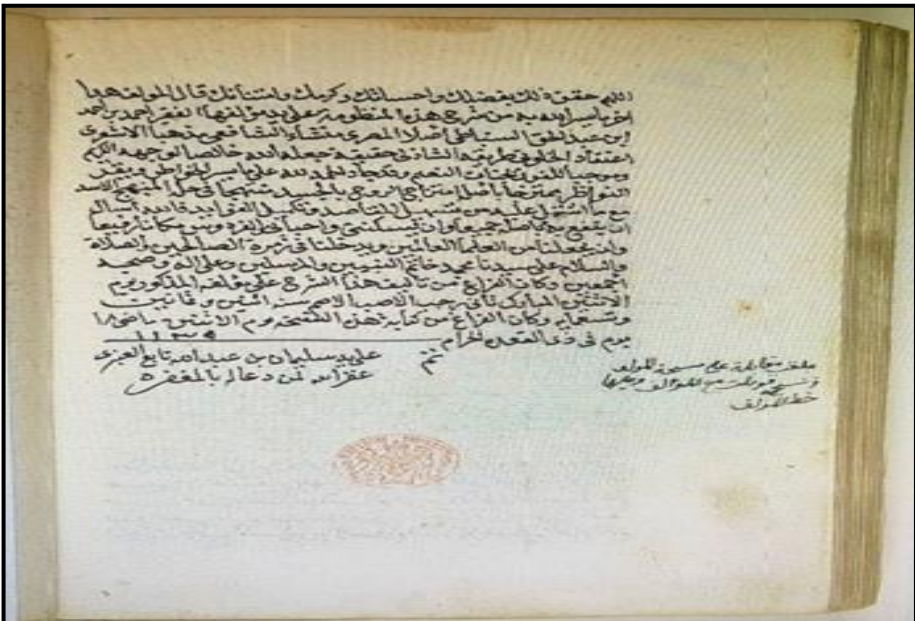 اللهم حقق ذلك بفضلك واحسانك وكرمك وامتنانك قال المولف هذا
اخر ما يسر الله به من شرح هذه المنظومة على يد مؤلفها الفقير احمد بن احمد
ابن عبد الحق السنباطي اصلا المصري منشأ الشافعي مذهبا الاشعري
اعتقادا الخلوتي طريقة الشاذلي حقيقة جعله الله خالصا لوجهه الكريم
وموجبا للفوز بجنات النعيم
مع ما اشتمل عليه من تسهيل المقاصد وتكميل الفوايد فالله اسال
ان ينفع به كما صله جميعا وان يسكنني واحبائي الفردوس مكانا رفيعا
وان يجعلنا من العلما العاملين ويدخلنا في زمرة الصالحين والصلاة
والسلام على سيدنا محمد خاتم النبيين والمرسلين وعلى اله وصحبه
اجمعين وكان الفراغ من تاليف هذا الشرح على يد مولفه المذكور يوم
الاثنين المبارك ثاني رجب الاصب الاصم سنة اثنين وثمانين
وتسعمايه وكان الفراغ من كتابة هذه النسخة يوم الاثنين ماضى ١٨
يوم في ذي القعدة الحرام
تم على يد سليمان بن عبد الله تابع
غفر الله لمن دعا له بالمغفره
بلغ مقابلة على مسودة المولف
ونسخة قوبلت مع المولف وعليها
خط المولف